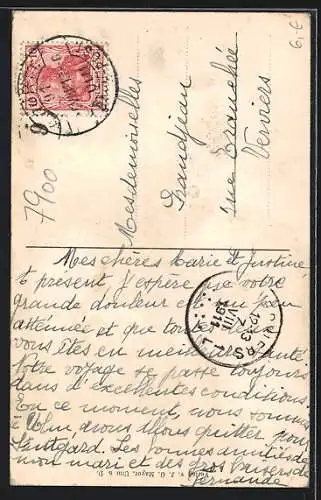 6,€
7900
Mesdemoiselles
Grandjean
rue Tranchée
Verviers
Mes chères Marie et Justine
à présent J'espère que votre
grande douleur est un peu
attennée et que toutes
vous êtes en meilleure santé
Notre voyage se passe toujours
dans d'excellentes conditions
En ce moment, nous sommes
à Ulm nous allons quitter pour
Stuttgard. Les bonnes amitiés de
mon mari et des gros baisers de
VERVIERS
12-13
7
VIII
1911
Verlag v. J. G. Mayer, Ulm a. D.
10